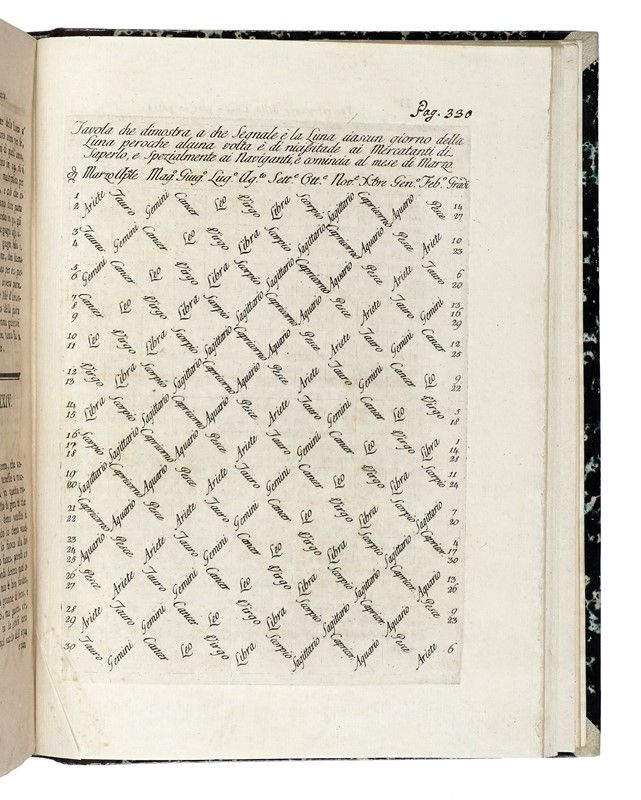 Pag. 330
Tavola che dimostra, a che Segnale è la Luna ciascun giorno della
Luna peroche alcuna volta è di nicistade ai Mercatanti di
Saperlo, e Spezialmente ai Naviganti, è comincia al mese di Marzo.
Marzo Aprle Mag.º Giug.º Lug.º Ag.to Sett.e Ott.e Nov.e Xbre Gen.º Feb.º Gradi
1 2 Ariete Tauro Gemini Cancer Leo Virgo Libra Scorpio Sagittario Capricorno Aquario Pesce 14 27
3 4 Tauro Gemini Cancer Leo Virgo Libra Scorpio Sagittario Capricorno Aquario Pesce Ariete 10 23
5 6 Gemini Cancer Leo Virgo Libra Scorpio Sagittario Capricorno Aquario Pesce Ariete Tauro 6 20
7 8 9 Cancer Leo Virgo Libra Scorpio Sagittario Capricorno Aquario Pesce Ariete Tauro Gemini 13 16 29
10 11 Leo Virgo Libra Scorpio Sagittario Capricorno Aquario Pesce Ariete Tauro Gemini Cancer 12 25
12 13 Virgo Libra Scorpio Sagittario Capricorno Aquario Pesce Ariete Tauro Gemini Cancer Leo 9 22
14 15 Libra Scorpio Sagittario Capricorno Aquario Pesce Ariete Tauro Gemini Cancer Leo Virgo 5 18
16 17 18 Scorpio Sagittario Capricorno Aquario Pesce Ariete Tauro Gemini Cancer Leo Virgo Libra 1 14 28
19 20 Sagittario Capricorno Aquario Pesce Ariete Tauro Gemini Cancer Leo Virgo Libra Scorpio 11 24
21 22 Capricorno Aquario Pesce Ariete Tauro Gemini Cancer Leo Virgo Libra Scorpio Sagittario 7 20
23 24 25 Aquario Pesce Ariete Tauro Gemini Cancer Leo Virgo Libra Scorpio Sagittario Capricor 4 17 30
26 27 Pesce Ariete Tauro Gemini Cancer Leo Virgo Libra Scorpio Sagittario Capricor Aquario 13 26
28 29 Ariete Tauro Gemini Cancer Leo Virgo Libra Scorpio Sagittario Capricor Aquario Pesce 9 23
30 Tauro Gemini Cancer Leo Virgo Libra Scorpio Sagittario Capricor Aquario Pesce Ariete 6